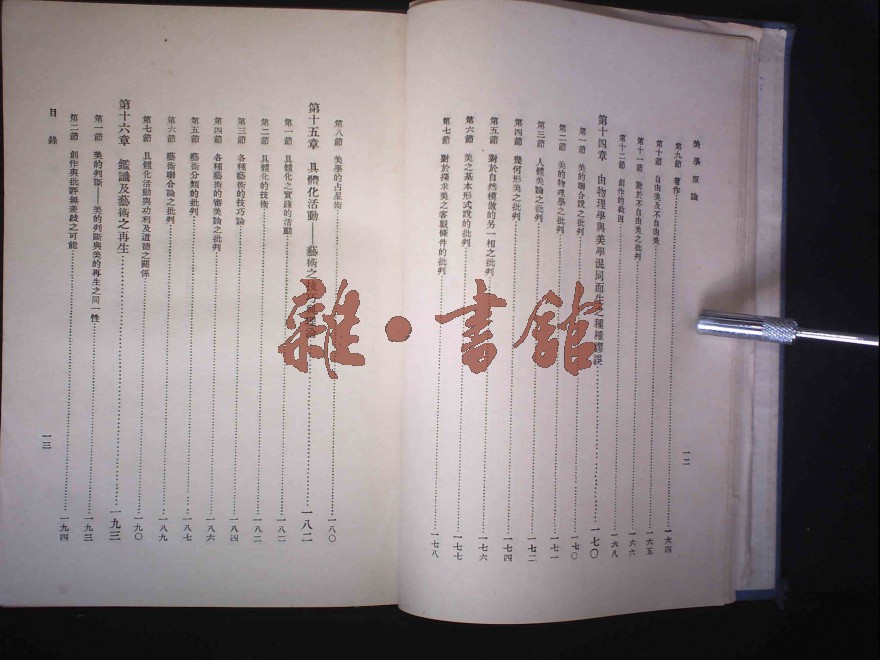 美學原論
第九節 著作 一六四
第十節 自由美及不自由美 一六五
第十一節 對於不自由美之批判 一六六
第十二節 創作的動因 一六八
第十四章 由物理學與美學混同而生之種種謬誤 一七〇
第一節 美的聯合說之批判 一七〇
第二節 美的物理學之批判 一七一
第三節 人體美論之批判 一七二
第四節 幾何形美之批判 一七四
第五節 對於自然模倣的另一相之批判 一七六
第六節 美之基本形式說的批判 一七七
第七節 對於探求美之客觀條件的批判 一七八
一二
第八節 美學的占星術 一八〇
第十五章 具體化活動——藝術之技巧與理論 一八二
第一節 具體化之實踐的活動 一八二
第二節 具體化的技術 一八二
第三節 各種藝術的技巧論 一八四
第四節 各種藝術的審美論之批判 一八六
第五節 藝術分類的批判 一八七
第六節 藝術聯合論之批判 一八九
第七節 具體化活動與功利及道德之關係 一九〇
第十六章 鑑識及藝術之再生 一九三
第一節 美的判斷——美的判斷與美的再生之同一性 一九三
第二節 創作與批評無差歧之可能 一九四
目錄
一三
雜·書館